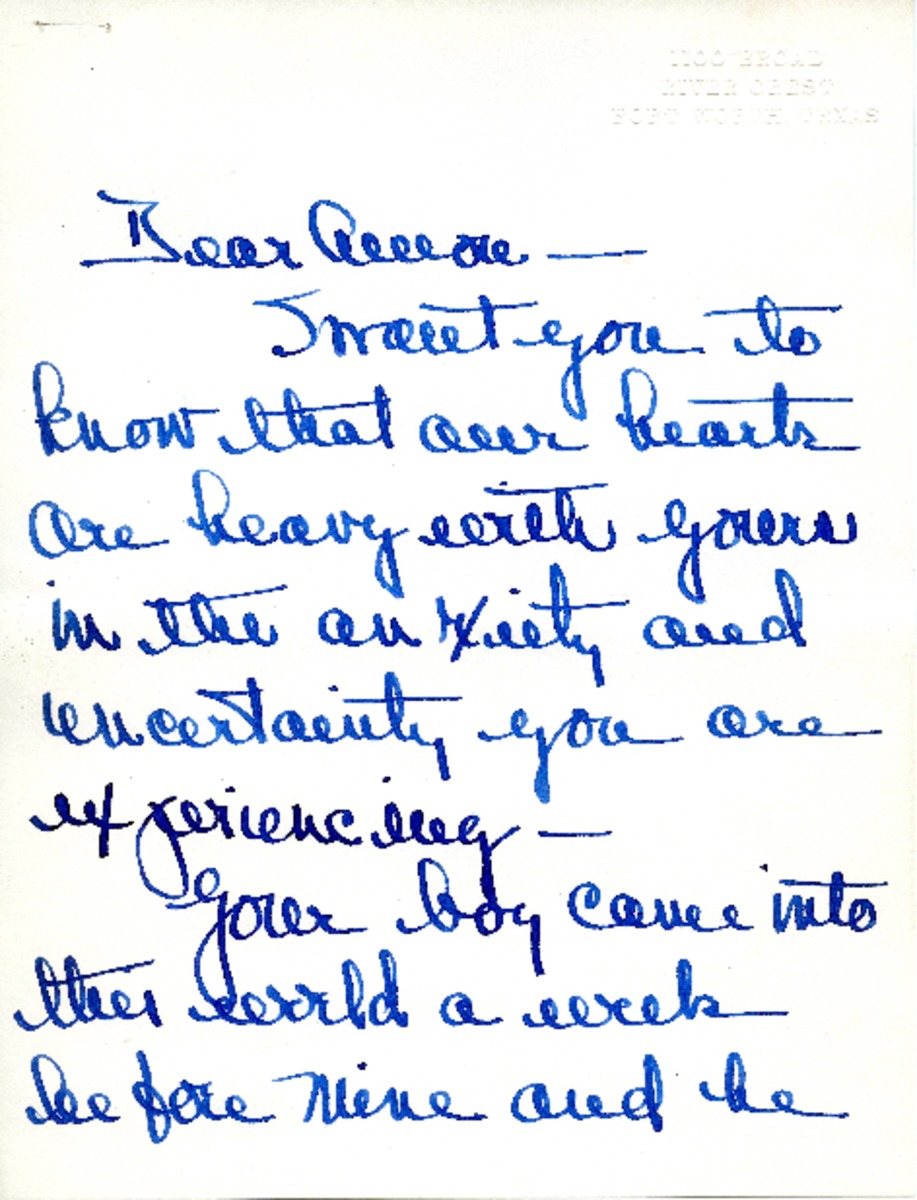 1100 BROAD
RIVER CREST
FORT WORTH, TEXAS
Dear Amon —
I want you to
know that our hearts
are heavy with yours
in the anxiety and
uncertainty you are
experiencing —
Your boy came into
this world a week
before mine and he